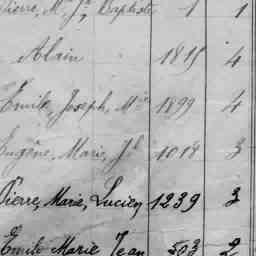 Pierre, M. Jn Baptiste 1 1
Alain 1815 4
Emile, Joseph, Mie 1899 4
Eugène, Marie, Jh 1018 3
Pierre, Marie, Lucien 1239 3
Emile Marie Jean 503 2